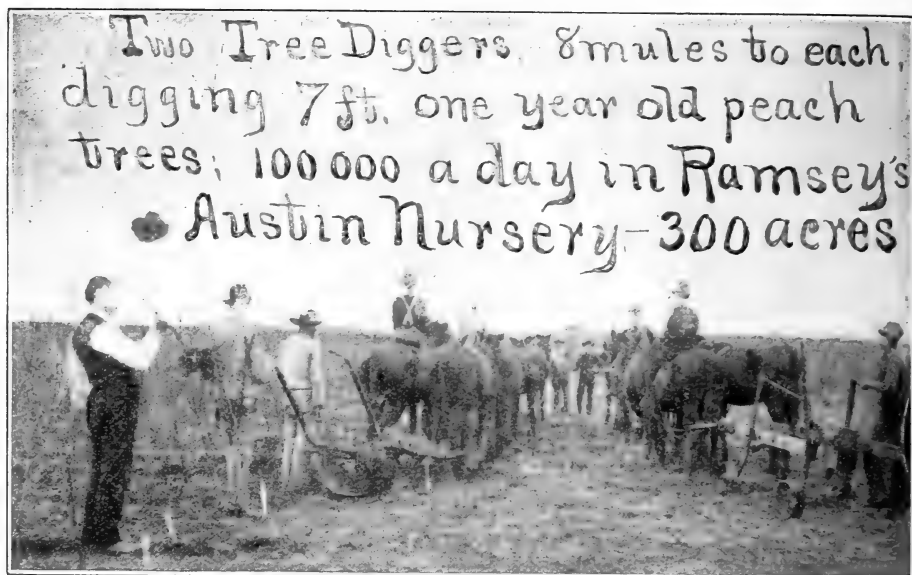 Two Tree Diggers, 8 mules to each,
digging 7 ft. one year old peach
trees; 100 000 a day in Ramsey's
Austin Nursery - 300 acres